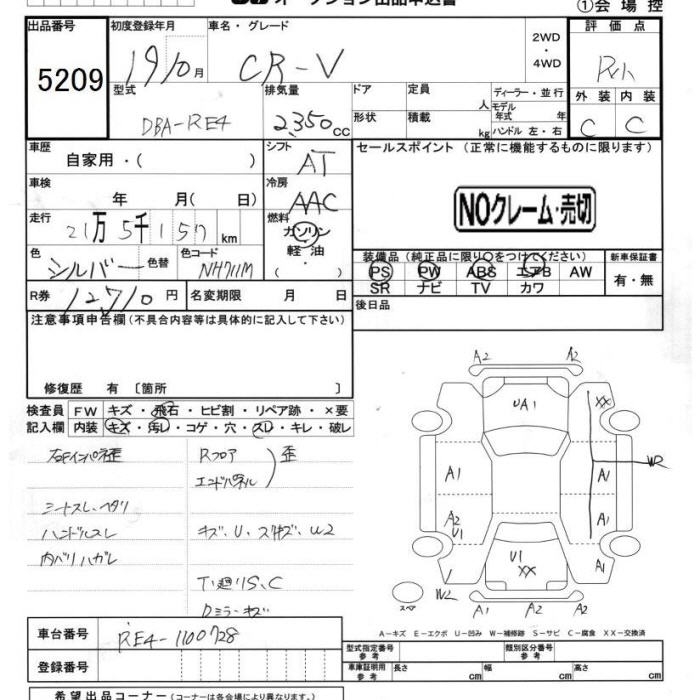 オークション出品申込書
①会場控
出品番号
初度登録年月
車名・グレード
2WD
・
4WD
評価点
5209
19 / 10 月
CR-V
外装
内装
型式
排気量
ドア
定員
人
ディーラー・並行
モデル年式 年
C
C
DBA-RE4
2,350 cc
形状
積載
kg
ハンドル 左・右
車歴
自家用・( )
シフト
AT
セールスポイント (正常に機能するものに限ります)
車検
年 月( 日)
冷房
AAC
NOクレーム・売切
走行
21万5千157 km
燃料
ガソリン
・
軽油
・
( )
色
シルバー
色替
色コード
NH711M
装備品 (純正品に限り○をつけてください)
新車保証書
PS PW ABS エアB AW
SR ナビ TV カワ
有・無
R券
12710 円
名変期限 月 日
後日品
注意事項申告欄 (不具合内容等は具体的に記入して下さい)
修復歴 有 〔箇所 〕
検査員記入欄
FW キズ・飛石・ヒビ割・リペア跡・×要
内装 キズ・汚レ・コゲ・穴・スレ・キレ・破レ
Rフロア
エンドパネル
歪
シートスレ、ヘタリ
ハンドルスレ
キズ、U、スリキズ、W2
内バリハガレ
T廻りS、C
Dミラーキズ
A2
A2
UA1
XX
W2
A1
A1
A2
U1
A1
U1
XX
A1
W2
A1
A2
A2
スペア
A-キズ E-エクボ U-凹み W-補修跡 S-サビ C-腐食 XX-交換済
車台番号
RE4-1100728
型式指定番号 参考
類別区分番号 参考
登録番号
車庫証明用 参考
長さ cm
幅 cm
高さ cm
希望出品コーナー (コーナーは各会場により異なります)